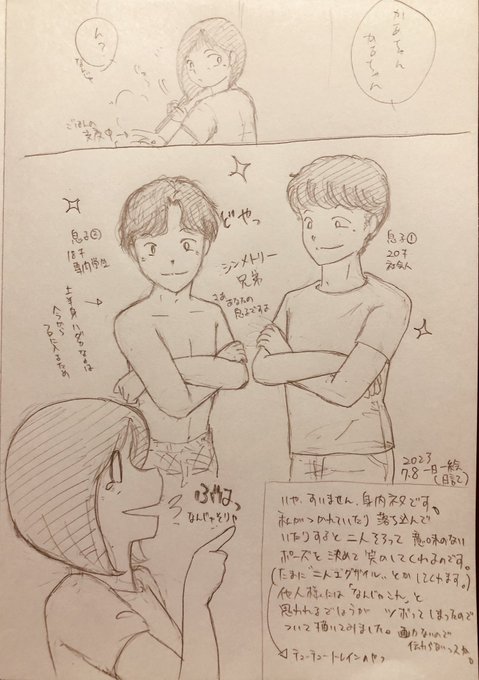 かあちゃん
かあちゃん
ん？
ごはんの
支度中→
どやっ
シンメトリー
兄弟
さあ あなたの
息子ですよ
息子①
20才
社会人
息子②
18才
専門学生
上半身ハダカなのは
今から
フロに入るため
ぶはっ
なんじゃそりゃ
2023
7.8 一日一絵
(日記)
いや、すいません、身内ネタです。
私がつかれていたり 落ち込んで
いたりすると 二人そろって 意味のない
ポーズを 決めて 笑かしてくれるのです。
(たまに"二人エグザイル"とかしてくれます。)
他人様には「なんじゃこれ」と
思われるでしょうが ツボってしまったので
ついて描いてみました。 画力ないので
伝わらないっスね
△チューチュートレインのやつ